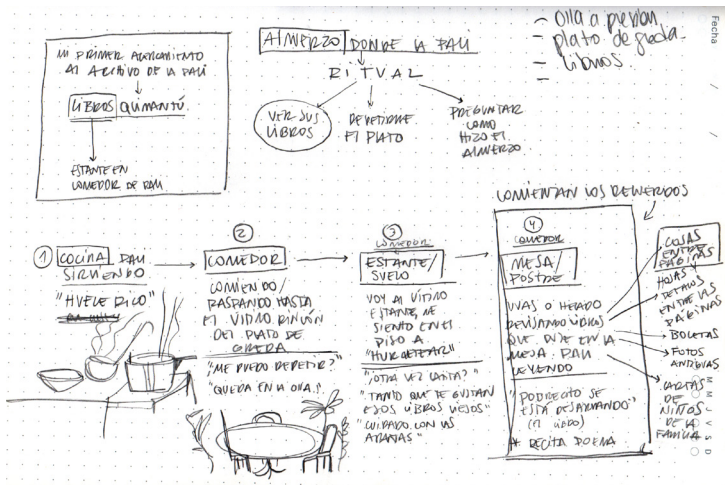 MI PRIMER ACERCAMIENTO
AL ARCHIVO DE LA PALI
LIBROS QUIMANTÚ
ESTANTE EN
COMEDOR DE PALI
ALMUERZO DONDE LA PALI
RITUAL
VER SUS
LIBROS
REPETIRME
EL PLATO
PREGUNTAR
COMO
HIZO EL
ALMUERZO
- olla a presión
- plato de greda
- libros
-
Fecha
1 COCINA PALI
SIRVIENDO
"HUELE RICO"
2
COMEDOR
COMIENDO/
RASPANDO HASTA
EL ULTIMO RINCÓN
DEL PLATO DE
GREDA
"ME PUEDO REPETIR?"
"QUEDA EN LA OLLA."
3
COMEDOR
ESTANTE/
SUELO
VOY AL ULTIMO
ESTANTE, ME
SIENTO EN EL
PISO A
"HURGUETEAR"
"¿OTRA VEZ
"TANTO QUE TE GUSTAN
ESOS LIBROS VIEJOS"
"CUIDADO CON LAS
ARAÑAS"
COMIENZAN LOS RECUERDOS
4
COMEDOR
MESA/
POSTRE
UVAS O HELADO
REVISANDO LIBROS
QUE DEJE EN LA
MESA. PALI
LEYENDO
"POBRECITO SE
ESTÁ DESARMANDO"
(EL LIBRO)
* RECITA POEMA
COSAS
ENTRE
PÁGINAS
HOJAS Y
PETALOS
ENTRE LAS
PÁGINAS
BOLETAS
FOTOS
ANTIGUAS
CARTAS
DE
NIÑOS
DE LA
FAMILIA
M M J V S D